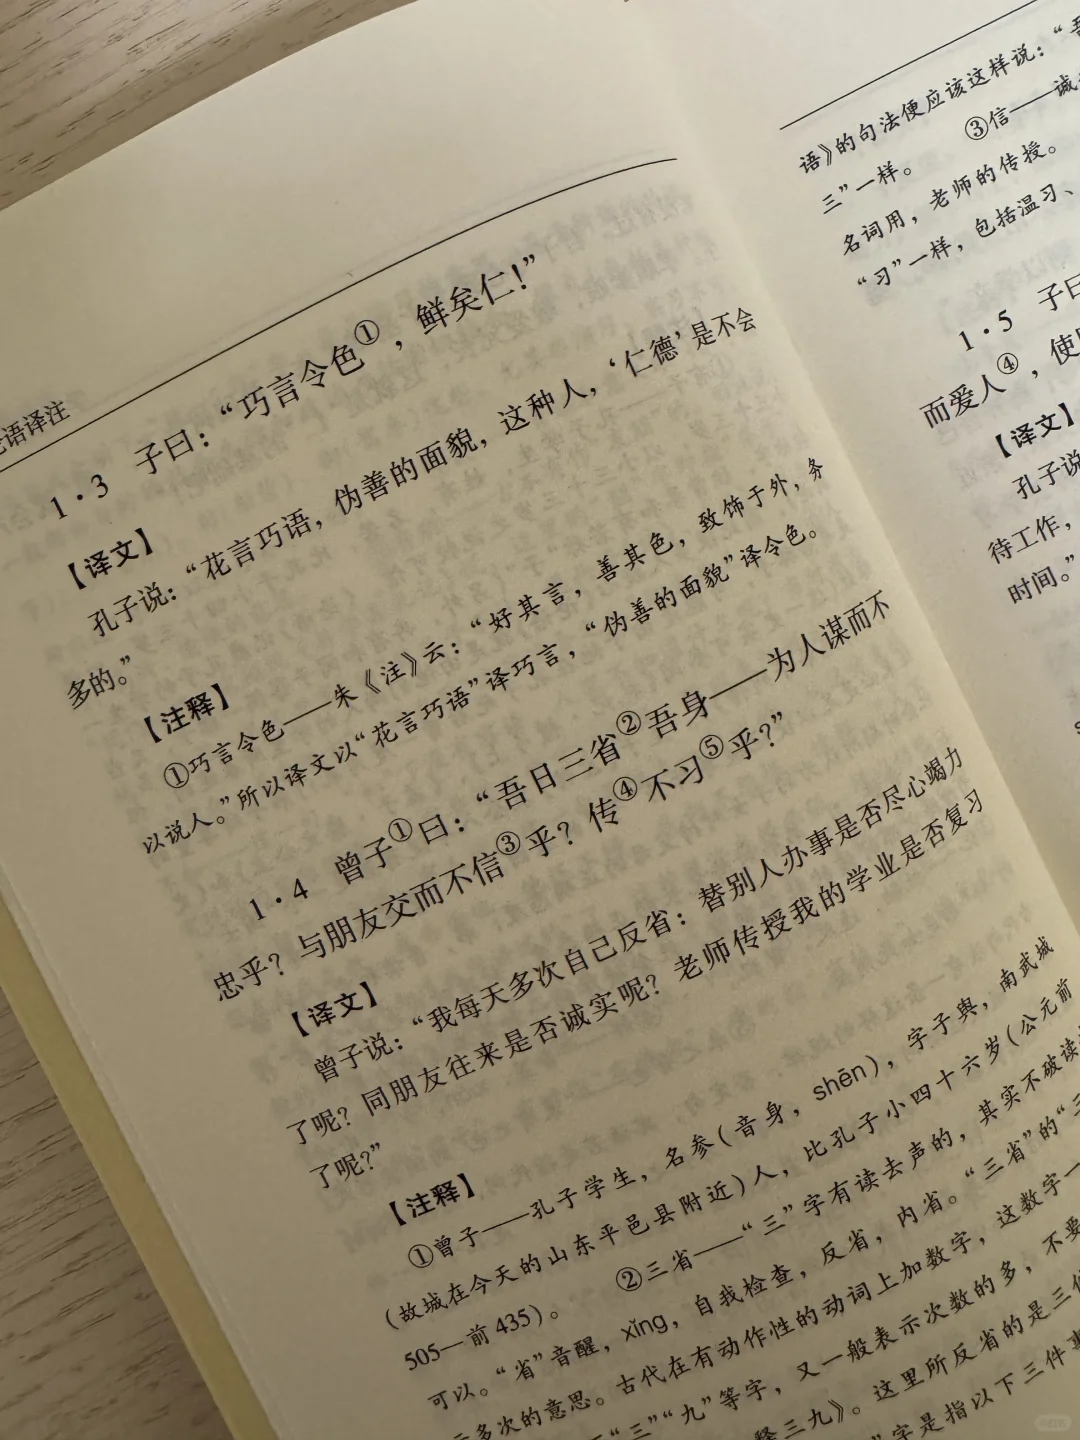 语译注
1·3 子曰：“巧言令色①，鲜矣仁！”
【译文】
孔子说：“花言巧语，伪善的面貌，这种人，‘仁德’是不会
多的。”
【注释】
①巧言令色——朱《注》云：“好其言，善其色，致饰于外，务
以说人。”所以译文以“花言巧语”译巧言，“伪善的面貌”译令色。
1·4 曾子①曰：“吾日三省②吾身——为人谋而不
忠乎？与朋友交而不信③乎？传④不习⑤乎？”
【译文】
曾子说：“我每天多次自己反省：替别人办事是否尽心竭力
了呢？同朋友往来是否诚实呢？老师传授我的学业是否复习
了呢？”
【注释】
①曾子——孔子学生，名参（音身，shēn），字子舆，南武城
（故城在今天的山东平邑县附近）人，比孔子小四十六岁（公元前
505—前435）。 ②三省——“三”字有读去声的，其实不破读
可以。“省”音醒，xǐng，自我检查，反省，内省。“三省”的“三
多次的意思。古代在有动作性的动词上加数字，这数字一
“三”“九”等字，又一般表示次数的多，不要
释三九》。这里所反省的是三件
字是指以下三件事
语》的句法便应该这样说：“吾
三”一样。 ③信——诚
名词用，老师的传授。
“习”一样，包括温习、
1·5 子曰
而爱人④，使
【译文】
孔子说
待工作，
时间。”